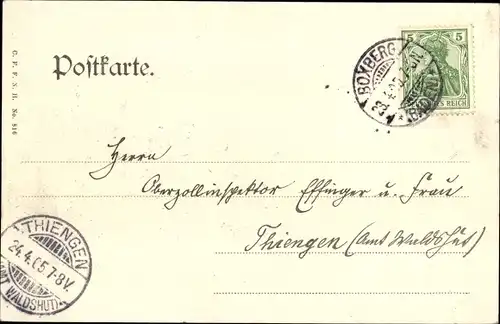 C. P. F. N. H. No. 846
Postkarte.
5 5
S REICH
BOXBERG
23.4.05.
(BADEN)
Herrn
Oberzollinspektor Effinger u. Frau
Thiengen (Amt Waldshut)
THIENGEN
24.4.05.7-8V.
(AMT WALDSHUT)